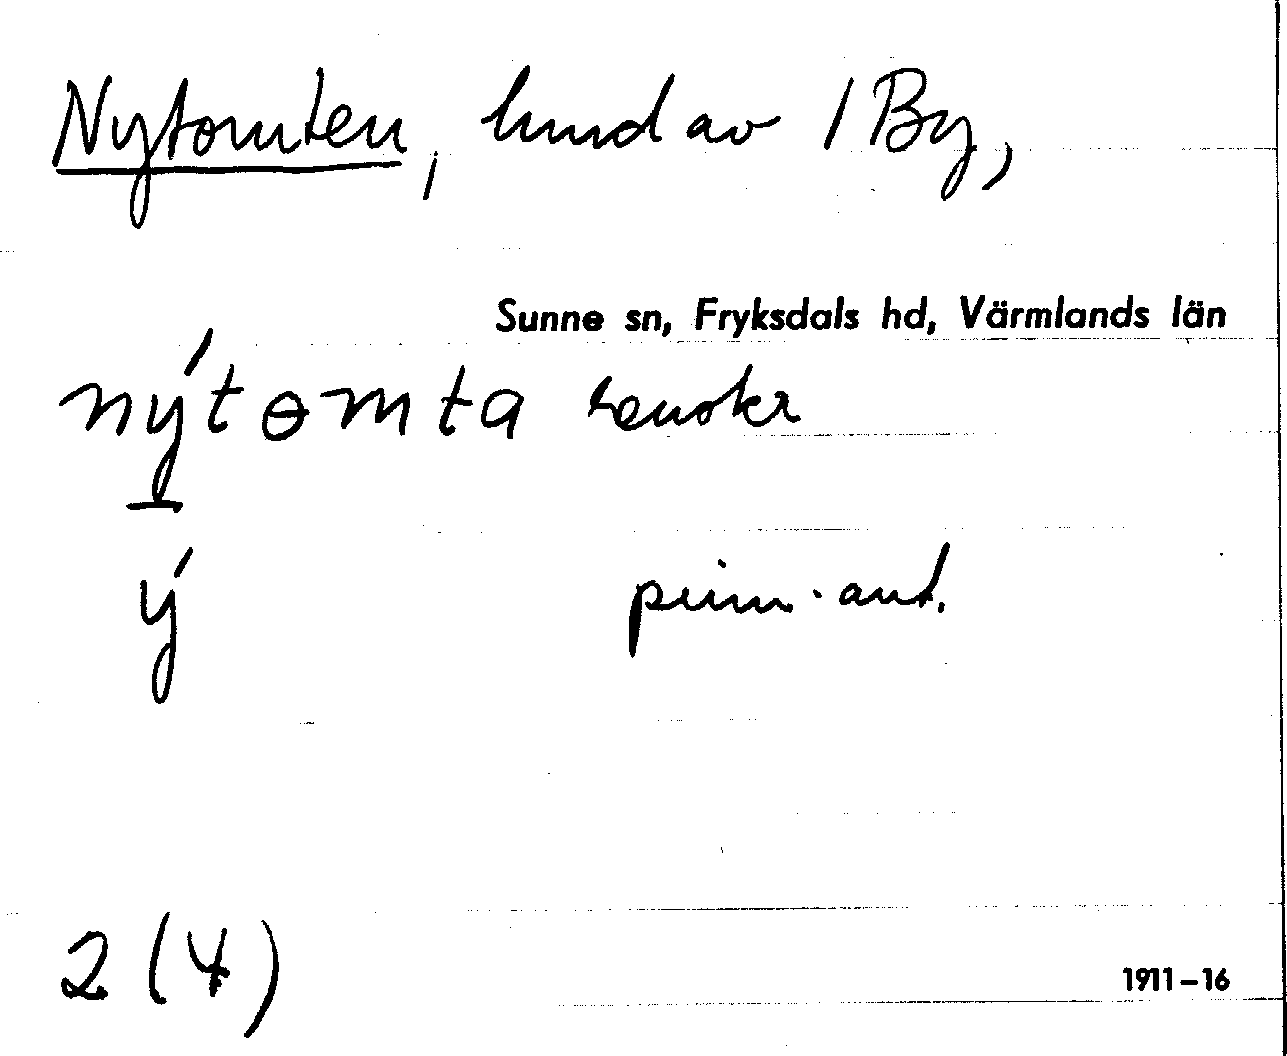 Nytomten, hmd av 1 By,
Sunne sn, Fryksdals hd, Värmlands län
nýtɵmta renskr
ý prim. ant.
2 (4)
1911–16